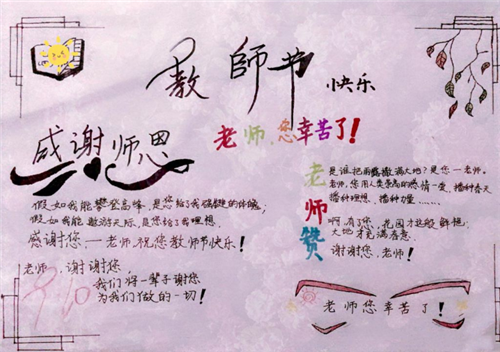 教師节 快乐
感谢师恩
老师,您幸苦了!
假如我能攀登高峰,是您给了我强健的体魄,
假如我能遨游天际,是您给了我理想,
感谢您一老师,祝您教师节快乐!
老师,谢谢您,
我们将一辈子谢您
为我们做的一切!
9.10
老师赞
是谁把雨露撒满大地?是您一老师。
老师,您用人类崇高的热情一爱,播种春天
播种理想、播种力量……
啊,有了您,花园才这般鲜艳,
大地才充满春意。
谢谢您,老师!
老师您幸苦了!